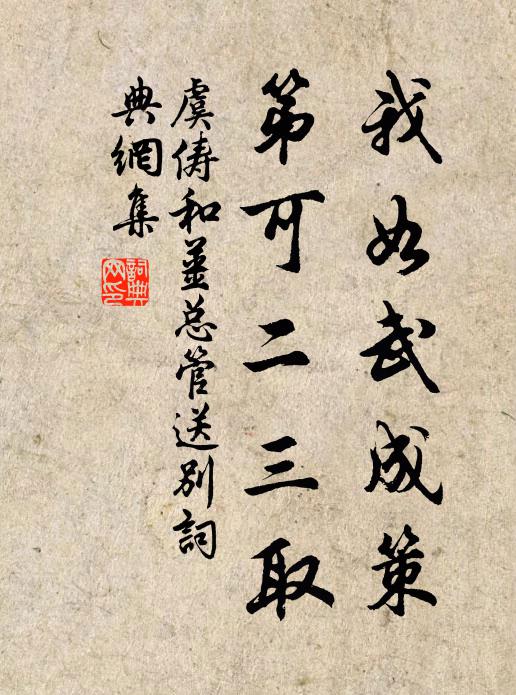 我如武成策
第可二三取
虞俦和姜总管送别詞
典網集
詞典
网印